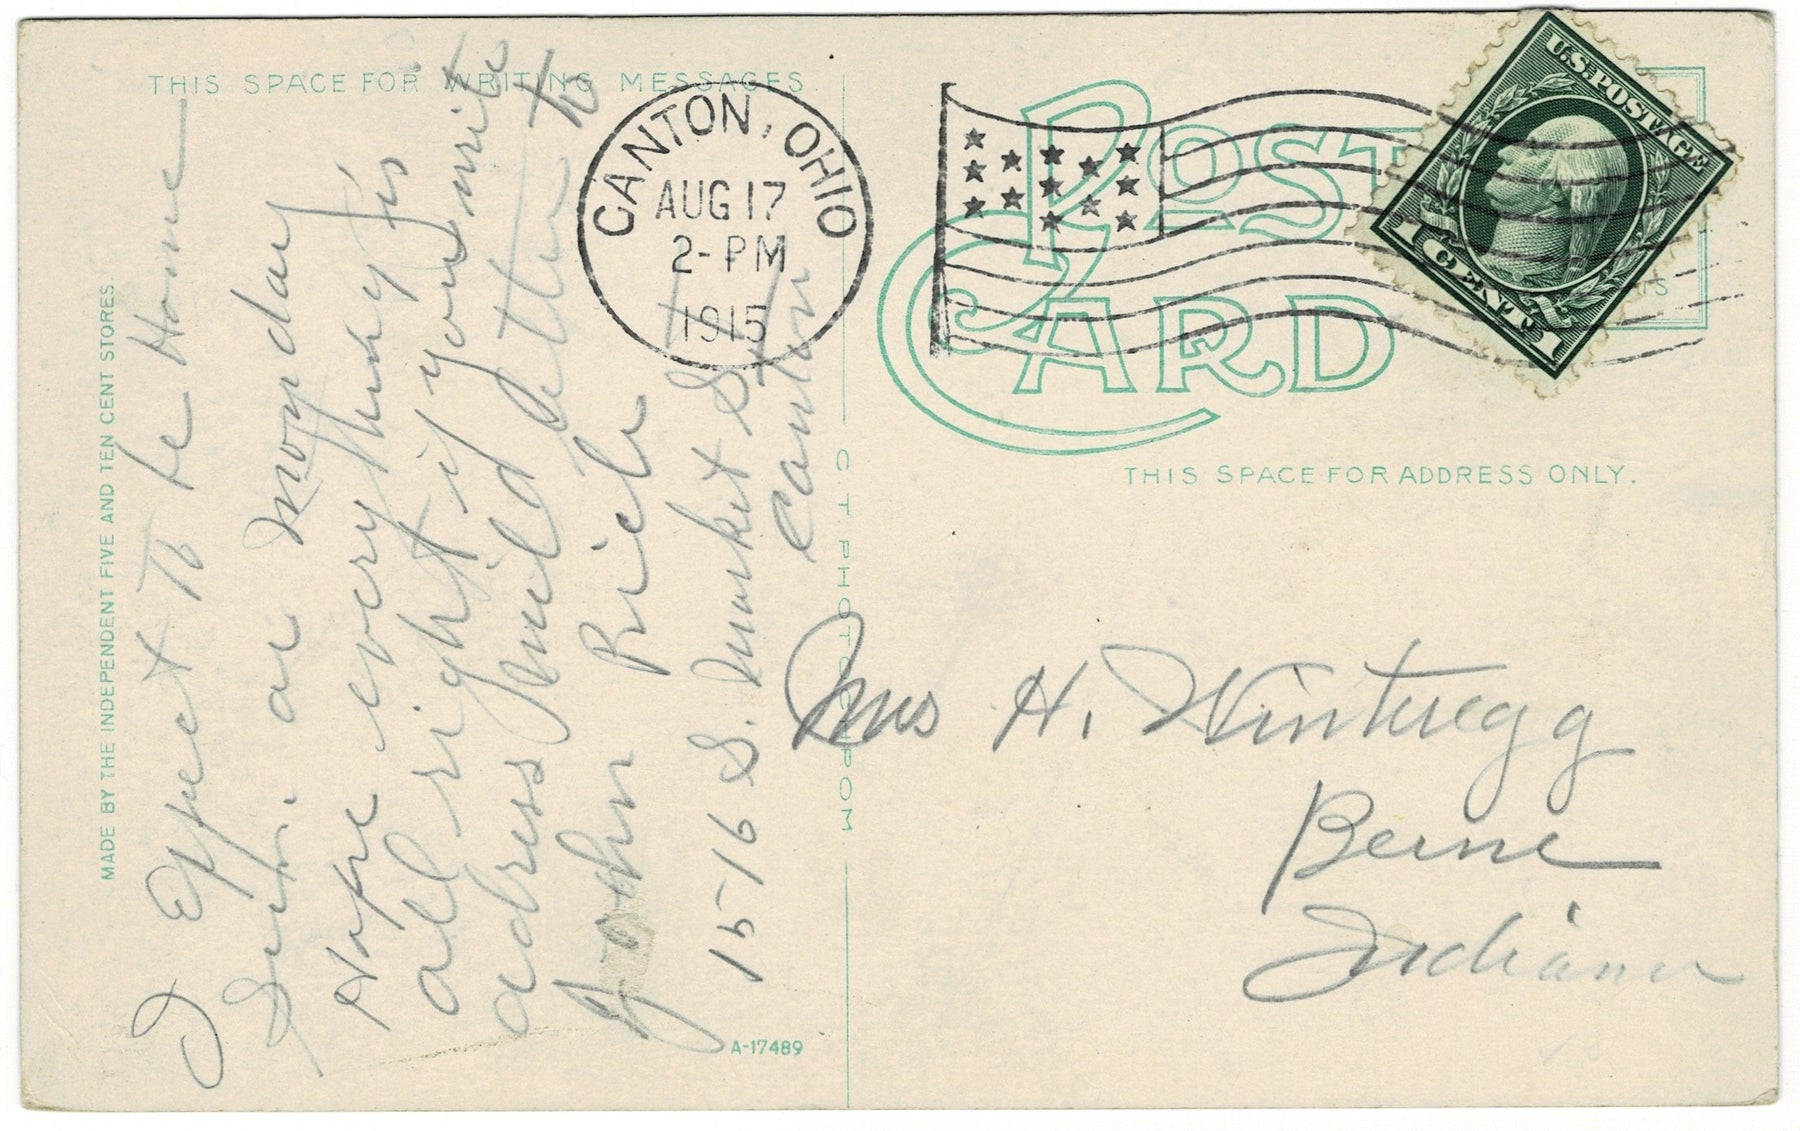 THIS SPACE FOR WRITING MESSAGES
I Expect To be Home
Sun. or Monday
Hope everything is
all right if you write
address Mail letter to
John Rich
1516 S. Market St
Canton
MADE BY THE INDEPENDENT FIVE AND TEN CENT STORES.
A-17489
C. T. PHOTOCHROM
CANTON, OHIO
AUG 17
2-PM
1915
POST CARD
U.S. POSTAGE
1 CENT 1
THIS SPACE FOR ADDRESS ONLY.
Mrs H. Winteregg
Berne
Indiana